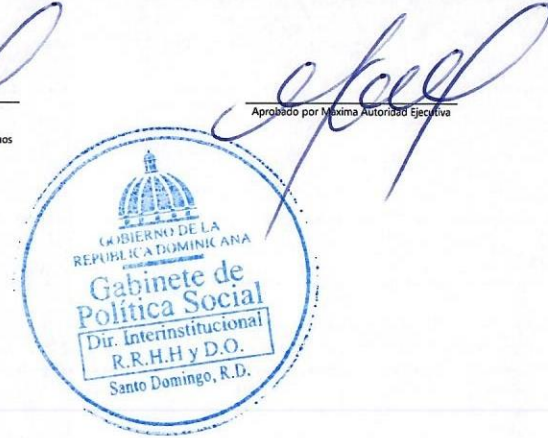 Aprobado por Máxima Autoridad Ejecutiva
GOBIERNO DE LA
REPÚBLICA DOMINICANA
Gabinete de
Política Social
Dir. Interinstitucional
R.R.H.H y D.O.
Santo Domingo, R.D.